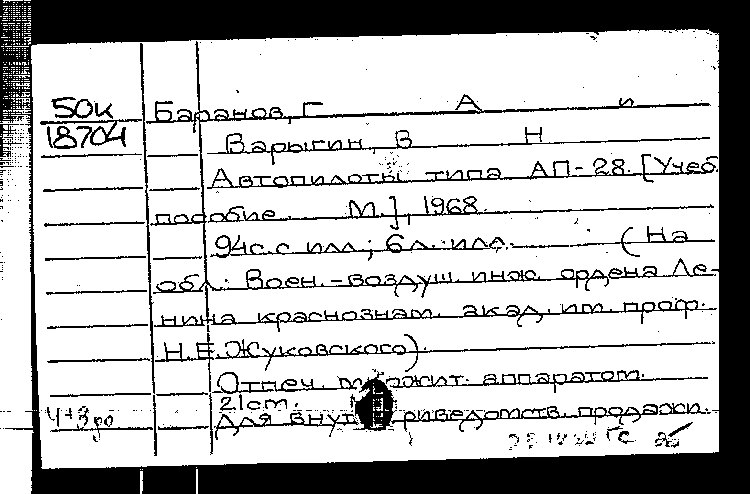 50к Баранов, Г А и
18704 Варыгин, В Н
Автопилоты типа АП-28. [Учеб.
пособие. М.], 1968.
94с. с илл; 6л. илл. (На
обл: Воен.-воздуш. инж. ордена Ле-
нина краснознам. акад. им. проф.
Н.Е.Жуковского).
Отпеч. множит. аппаратом.
21cm.
Для внутриведомств. продажи.